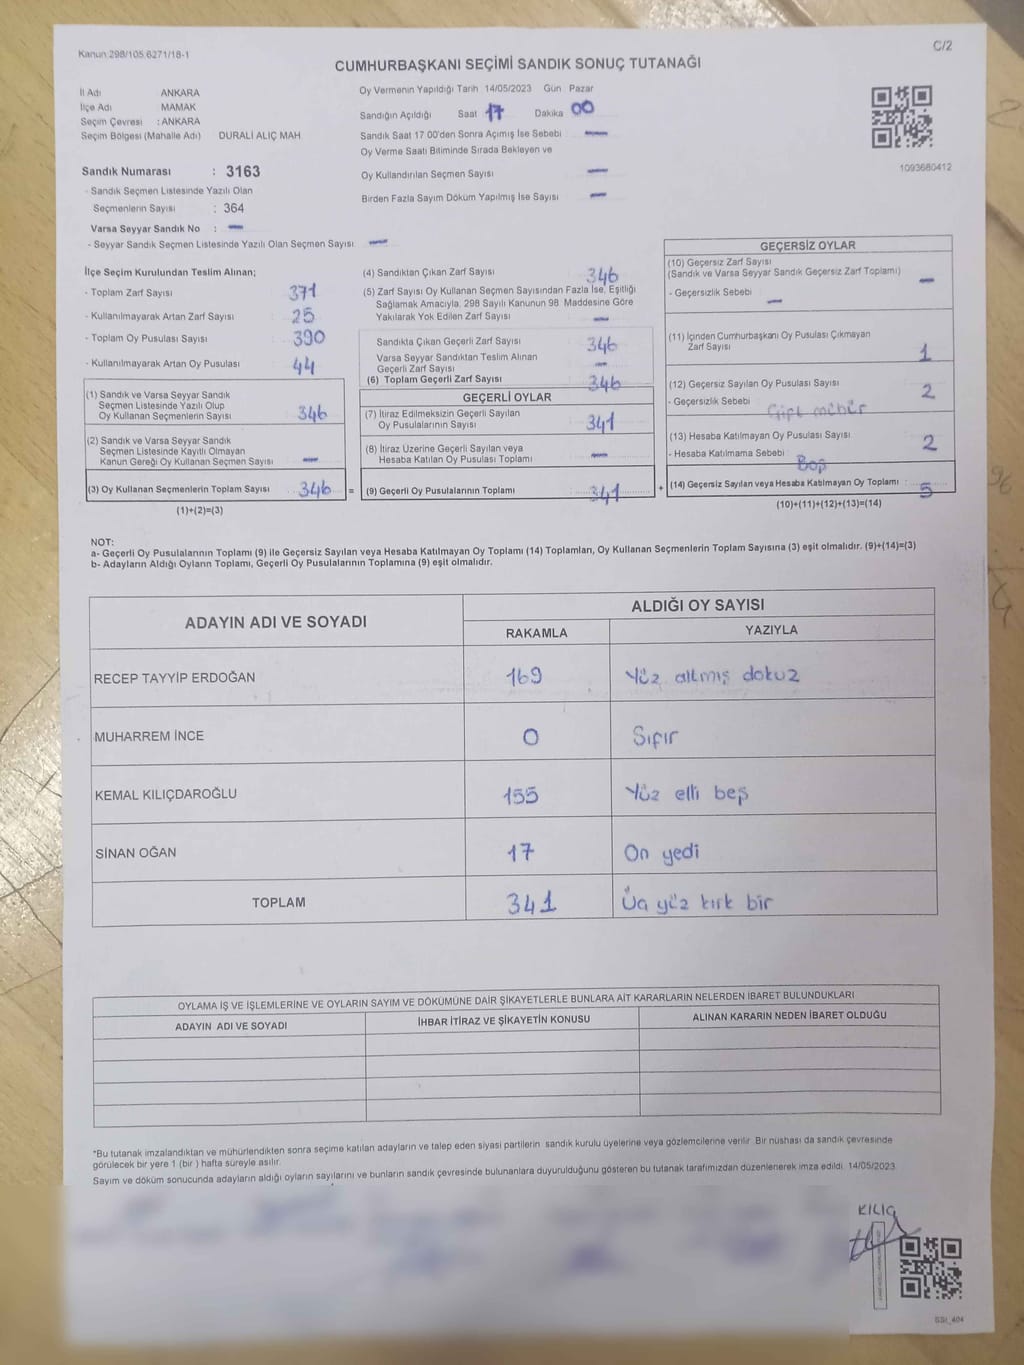 Kanun.298/105.6271/18-1
C/2
CUMHURBAŞKANI SEÇİMİ SANDIK SONUÇ TUTANAĞI
İl Adı ANKARA
İlçe Adı MAMAK
Seçim Çevresi : ANKARA
Seçim Bölgesi (Mahalle Adı) DURALİ ALIÇ MAH
Sandık Numarası : 3163
- Sandık Seçmen Listesinde Yazılı Olan
Seçmenlerin Sayısı : 364
Varsa Seyyar Sandık No : —
- Seyyar Sandık Seçmen Listesinde Yazılı Olan Seçmen Sayısı —
Oy Vermenin Yapıldığı Tarih 14/05/2023 Gün Pazar
Sandığın Açıldığı Saat 17 Dakika 00
Sandık Saat 17.00'den Sonra Açılmış İse Sebebi —
Oy Verme Saati Bitiminde Sırada Bekleyen ve
Oy Kullandırılan Seçmen Sayısı —
Birden Fazla Sayım Döküm Yapılmış İse Sayısı —
1093680412
İlçe Seçim Kurulundan Teslim Alınan;
- Toplam Zarf Sayısı : 371
- Kullanılmayarak Artan Zarf Sayısı : 25
- Toplam Oy Pusulası Sayısı : 390
- Kullanılmayarak Artan Oy Pusulası : 44
(1) Sandık ve Varsa Seyyar Sandık
Seçmen Listesinde Yazılı Olup
Oy Kullanan Seçmenlerin Sayısı : 346
(2) Sandık ve Varsa Seyyar Sandık
Seçmen Listesinde Kayıtlı Olmayan
Kanun Gereği Oy Kullanan Seçmen Sayısı : —
(3) Oy Kullanan Seçmenlerin Toplam Sayısı : 346
(1)+(2)=(3)
=
(4) Sandıktan Çıkan Zarf Sayısı 346
(5) Zarf Sayısı Oy Kullanan Seçmen Sayısından Fazla İse, Eşitliği
Sağlamak Amacıyla, 298 Sayılı Kanunun 98. Maddesine Göre
Yakılarak Yok Edilen Zarf Sayısı : —
Sandıkta Çıkan Geçerli Zarf Sayısı : 346
Varsa Seyyar Sandıktan Teslim Alınan
Geçerli Zarf Sayısı : —
(6) Toplam Geçerli Zarf Sayısı : 346
GEÇERLİ OYLAR
(7) İtiraz Edilmeksizin Geçerli Sayılan
Oy Pusulalarının Sayısı : 341
(8) İtiraz Üzerine Geçerli Sayılan veya
Hesaba Katılan Oy Pusulası Toplamı : —
(9) Geçerli Oy Pusulalarının Toplamı : 341
+
GEÇERSİZ OYLAR
(10) Geçersiz Zarf Sayısı
(Sandık ve Varsa Seyyar Sandık Geçersiz Zarf Toplamı) —
- Geçersizlik Sebebi : —
(11) İçinden Cumhurbaşkanı Oy Pusulası Çıkmayan
Zarf Sayısı 1
(12) Geçersiz Sayılan Oy Pusulası Sayısı 2
- Geçersizlik Sebebi : Çift mühür
(13) Hesaba Katılmayan Oy Pusulası Sayısı 2
- Hesaba Katılmama Sebebi : Boş
(14) Geçersiz Sayılan veya Hesaba Katılmayan Oy Toplamı : 5
(10)+(11)+(12)+(13)=(14)
NOT:
a- Geçerli Oy Pusulalarının Toplamı (9) ile Geçersiz Sayılan veya Hesaba Katılmayan Oy Toplamı (14) Toplamları, Oy Kullanan Seçmenlerin Toplam Sayısına (3) eşit olmalıdır. (9)+(14)=(3)
b- Adayların Aldığı Oyların Toplamı, Geçerli Oy Pusulalarının Toplamına (9) eşit olmalıdır.
ADAYIN ADI VE SOYADI ALDIĞI OY SAYISI
RAKAMLA YAZIYLA
RECEP TAYYİP ERDOĞAN 169 Yüz altmış dokuz
MUHARREM İNCE 0 Sıfır
KEMAL KILIÇDAROĞLU 155 Yüz elli beş
SİNAN OĞAN 17 On yedi
TOPLAM 341 Üç yüz kırk bir
OYLAMA İŞ VE İŞLEMLERİNE VE OYLARIN SAYIM VE DÖKÜMÜNE DAİR ŞİKAYETLERLE BUNLARA AİT KARARLARIN NELERDEN İBARET BULUNDUKLARI
ADAYIN ADI VE SOYADI İHBAR İTİRAZ VE ŞİKAYETİN KONUSU ALINAN KARARIN NEDEN İBARET OLDUĞU
*Bu tutanak imzalandıktan ve mühürlendikten sonra seçime katılan adayların ve talep eden siyasi partilerin sandık kurulu üyelerine veya gözlemcilerine verilir. Bir nüshası da sandık çevresinde
görülecek bir yere 1 (bir) hafta süreyle asılır.
Sayım ve döküm sonucunda adayların aldığı oyların sayılarını ve bunların sandık çevresinde bulunanlara duyurulduğunu gösteren bu tutanak tarafımızdan düzenlenerek imza edildi. 14/05/2023
KILIÇ
SSI_404